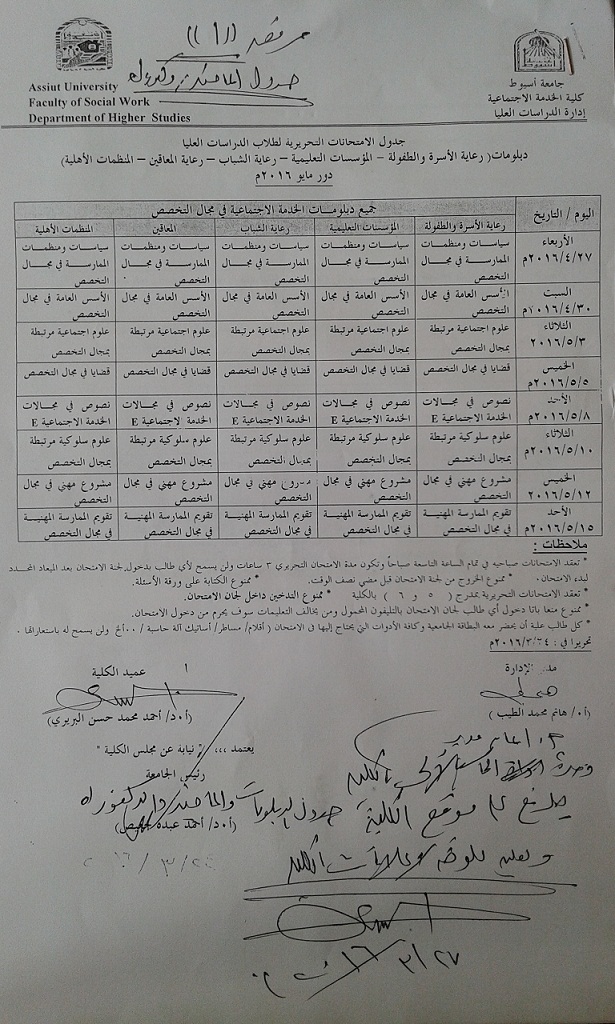 مرفق (( ١ ))
جدول الماجستير والدكتوراه
Assiut University
Faculty of Social Work
Department of Higher Studies
جامعة أسيوط
كلية الخدمة الاجتماعية
إدارة الدراسات العليا
جدول الامتحانات التحريرية لطلاب الدراسات العليا
دبلومات( رعاية الأسرة والطفولة – المؤسسات التعليمية – رعاية الشباب – رعاية المعاقين – المنظمات الأهلية)
دور مايو ٢٠١٦م
اليوم / التاريخ
جميع دبلومات الخدمة الاجتماعية في مجال التخصص
رعاية الأسرة والطفولة المؤسسات التعليمية رعاية الشباب المعاقين المنظمات الأهلية
الأربعاء سياسات ومنظمات سياسات ومنظمات سياسات ومنظمات سياسات ومنظمات سياسات ومنظمات
٢٠١٦/٤/٢٧م الممارسة في مجال الممارسة في مجال الممارسة في مجال الممارسة في مجال الممارسة في مجال
التخصص التخصص التخصص التخصص التخصص
السبت الأسس العامة في مجال الأسس العامة في مجال الأسس العامة في مجال الأسس العامة في مجال الأسس العامة في مجال
٢٠١٦/٤/٣٠م التخصص التخصص التخصص التخصص التخصص
الثلاثاء علوم اجتماعية مرتبطة علوم اجتماعية مرتبطة علوم اجتماعية مرتبطة علوم اجتماعية مرتبطة علوم اجتماعية مرتبطة
٢٠١٦/٥/٣م بمجال التخصص بمجال التخصص بمجال التخصص بمجال التخصص بمجال التخصص
الخميس قضايا في مجال التخصص قضايا في مجال التخصص قضايا في مجال التخصص قضايا في مجال التخصص قضايا في مجال التخصص
٢٠١٦/٥/٥م
الأحد نصوص في مجالات نصوص في مجالات نصوص في مجالات نصوص في مجالات نصوص في مجالات
٢٠١٦/٥/٨م الخدمة الاجتماعية E الخدمة الاجتماعية E الخدمة الاجتماعية E الخدمة الاجتماعية E الخدمة الاجتماعية E
الثلاثاء علوم سلوكية مرتبطة علوم سلوكية مرتبطة علوم سلوكية مرتبطة علوم سلوكية مرتبطة علوم سلوكية مرتبطة
٢٠١٦/٥/١٠م بمجال التخصص بمجال التخصص بمجال التخصص بمجال التخصص بمجال التخصص
الخميس مشروع مهني في مجال مشروع مهني في مجال مشروع مهني في مجال مشروع مهني في مجال مشروع مهني في مجال
٢٠١٦/٥/١٢م التخصص التخصص التخصص التخصص التخصص
الأحد تقويم الممارسة المهنية تقويم الممارسة المهنية تقويم الممارسة المهنية تقويم الممارسة المهنية تقويم الممارسة المهنية
٢٠١٦/٥/١٥م في مجال التخصص في مجال التخصص في مجال التخصص في مجال التخصص في مجال التخصص
ملاحظات :
* تعقد الامتحانات صباحيه في تمام الساعة التاسعة صباحاً وتكون مدة الامتحان التحريري ٣ ساعات ولن يسمح لأي طالب بدخول لجنة الامتحان بعد الميعاد المحدد
لبدء الامتحان . * ممنوع الخروج من لجنة الامتحان قبل مضي نصف الوقت. * ممنوع الكتابة على ورقة الأسئلة.
* تعقد الامتحانات التحريرية بمدرج ( ٥ و ٦ ) بالكلية * ممنوع التدخين داخل لجان الامتحان.
* ممنوع منعا باتا دخول أي طالب لجان الامتحان بالتليفون المحمول ومن يخالف التعليمات سوف يحرم من دخول الامتحان.
* كل طالب علية أن يحضر معه البطاقة الجامعية وكافة الأدوات التي يحتاج إليها في الامتحان ( أقلام/ مساطر/ أساتيك آلة حاسبة /٠٠٠ألخ ولن يسمح له باستعارتها .
تحريرا في : ٢٠١٦/٣/٢٤م
مدير الإدارة
(أ٠/ هانم محمد الطيب )
عميد الكلية
(أ٠د/ أحمد محمد حسن البربري)
يعتمد ،،، " نيابة عن مجلس الكلية "
رئيس الجامعة
(أ٠د/ أحمد عبده جعيص)
مدير
وحدة
على موقع الكلية جدول الدبلومات والماجستير والدكتوراه
الكلية
٢٠١٦/٣/٢٧